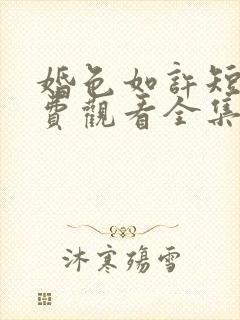 婚色如許短
費觀看全集
沐寒殤雪